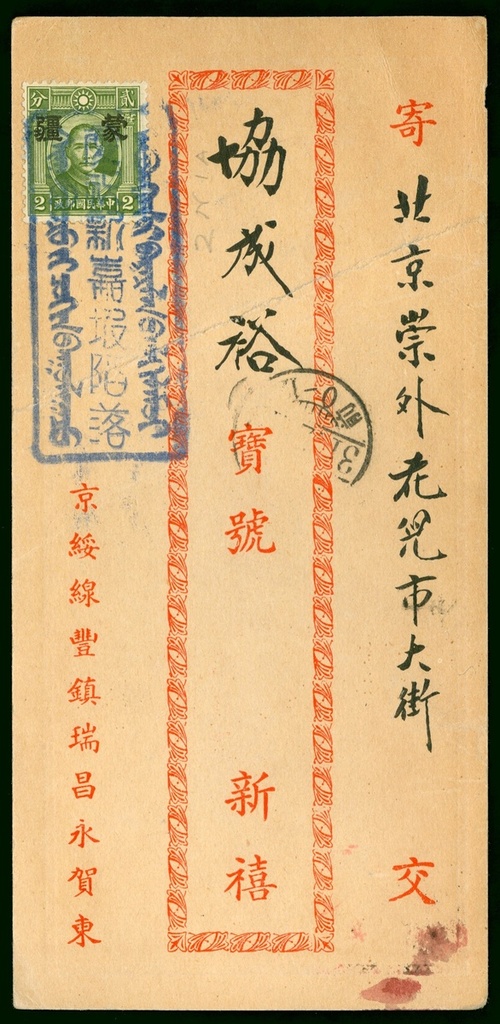 寄 北京崇外花兒市大街 交
協成裕 寶號 新禧
京綏線豐鎮瑞昌永賀柬
分 貳
疆 蒙
2 政郵國民華中 2
新嘉坡陷落